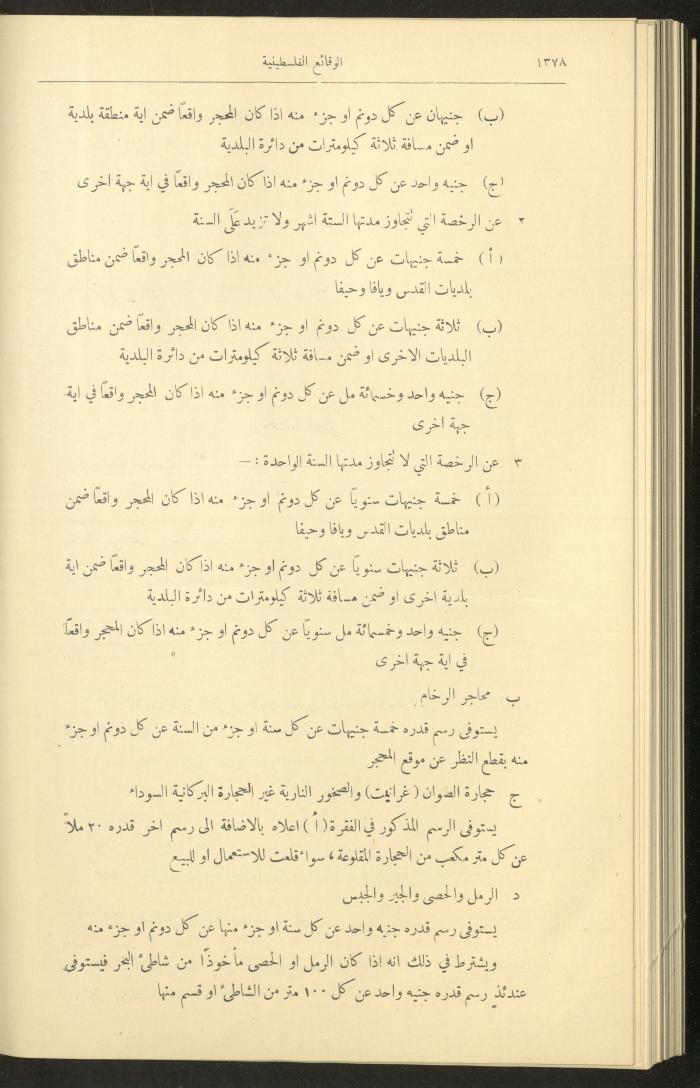 ١٣٧٨
الوقائع الفلسطينية
(ب) جنيهان عن كل دونم او جزء منه اذا كان المحجر واقعًا ضمن اية منطقة بلدية
او ضمن مسافة ثلاثة كيلومترات من دائرة البلدية
(ج) جنيه واحد عن كل دونم او جزء منه اذا كان المحجر واقعًا في اية جهة اخرى
٢ عن الرخصة التي تتجاوز مدتها الستة اشهر ولا تزيد عَلَى السنة
(أ) خمسة جنيهات عن كل دونم او جزء منه اذا كان المحجر واقعًا ضمن مناطق
بلديات القدس ويافا وحيفا
(ب) ثلاثة جنيهات عن كل دونم او جزء منه اذا كان المحجر واقعًا ضمن مناطق
البلديات الاخرى او ضمن مسافة ثلاثة كيلومترات من دائرة البلدية
(ج) جنيه واحد وخمسمائة مل عن كل دونم او جزء منه اذا كان المحجر واقعًا في اية
جهة اخرى
٣ عن الرخصة التي لا تتجاوز مدتها السنة الواحدة : —
(أ) خمسة جنيهات سنويًا عن كل دونم او جزء منه اذا كان المحجر واقعًا ضمن
مناطق بلديات القدس ويافا وحيفا
(ب) ثلاثة جنيهات سنويًا عن كل دونم او جزء منه اذا كان المحجر واقعًا ضمن اية
بلدية اخرى او ضمن مسافة ثلاثة كيلومترات من دائرة البلدية
(ج) جنيه واحد وخمسمائة مل سنويًا عن كل دونم او جزء منه اذا كان المحجر واقعًا
في اية جهة اخرى
ب محاجر الرخام
يستوفى رسم قدره خمسة جنيهات عن كل سنة او جزء من السنة عن كل دونم او جزء
منه بقطع النظر عن موقع المحجر
ج حجارة الصوان (غرانيت) والصخور النارية غير الحجارة البركانية السوداء
يستوفى الرسم المذكور في الفقرة (أ) اعلاه بالاضافة الى رسم اخر قدره ٢٠ ملاً
عن كل متر مكعب من الحجارة المقلوعة، سواء قلعت للاستعمال او للبيع
د الرمل والحصى والجير والجبس
يستوفى رسم قدره جنيه واحد عن كل سنة او جزء منها عن كل دونم او جزء منه
ويشترط في ذلك انه اذا كان الرمل او الحصى مأخوذًا من شاطئ البحر فيستوفى
عندئذٍ رسم قدره جنيه واحد عن كل ١٠٠ متر من الشاطئ او قسم منها